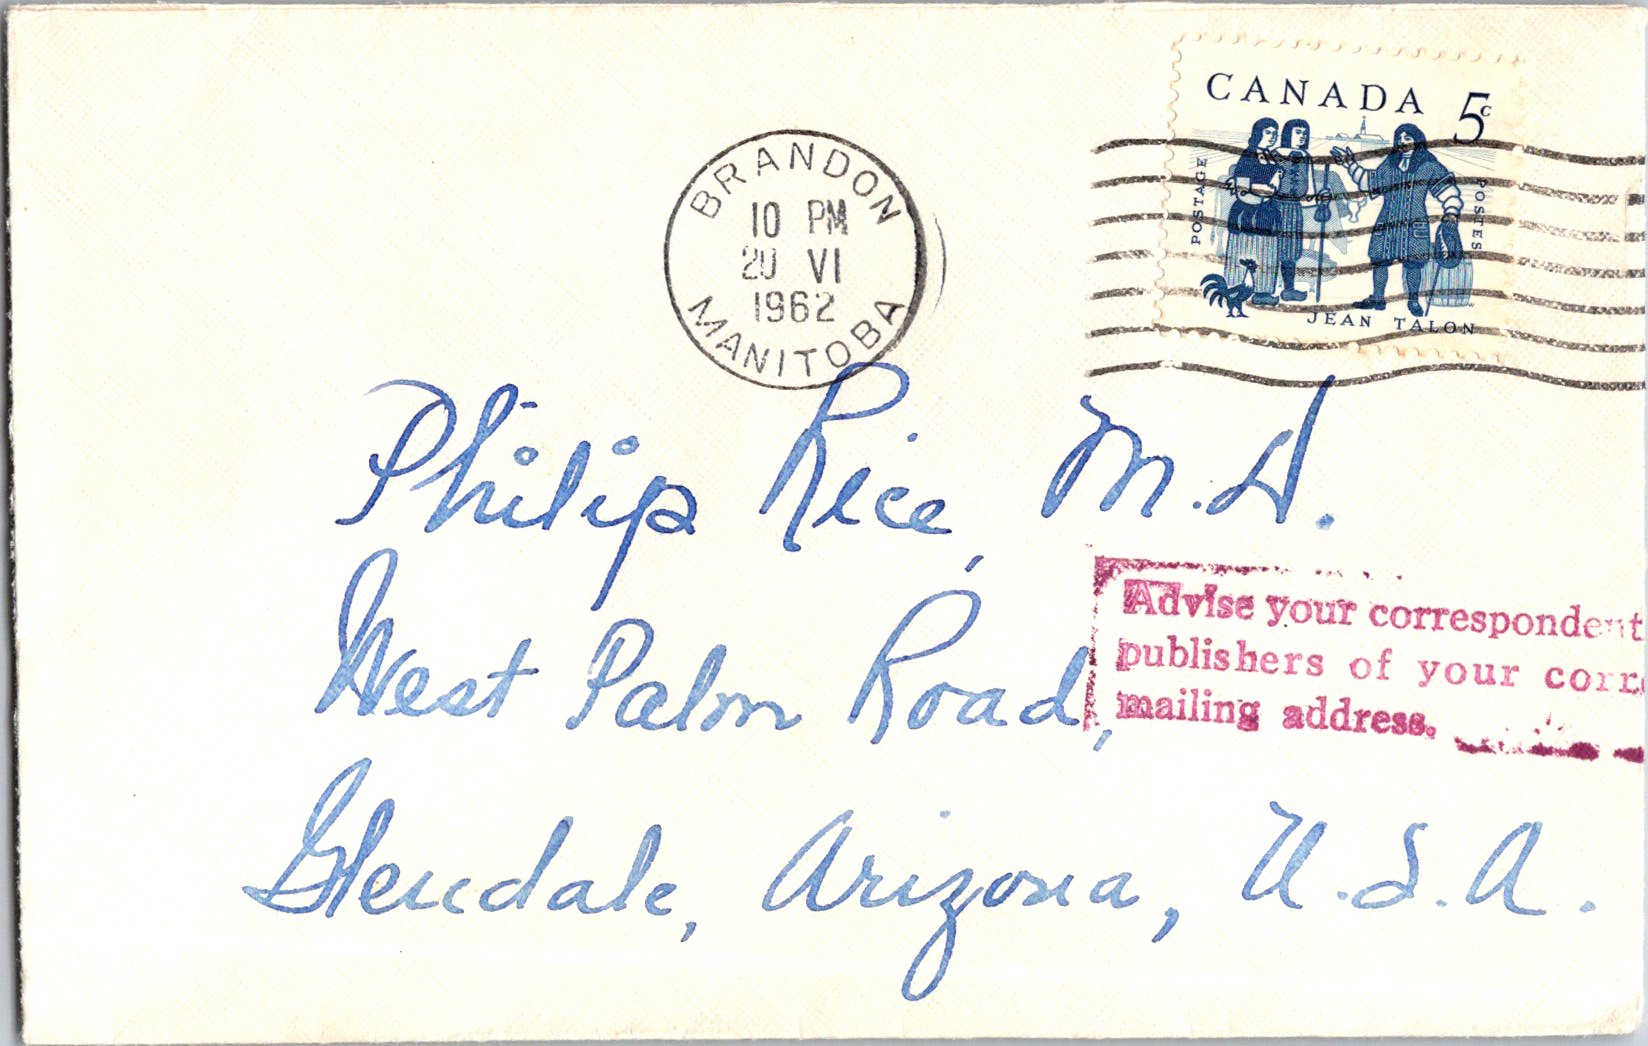 CANADA 5c
POSTAGE
POSTES
JEAN TALON
BRANDON
10 PM
20 VI
1962
MANITOBA
Philip Rice, M.D.
West Palm Road,
Glendale, Arizona, U.S.A.
Advise your correspondent
publishers of your corr
mailing address.